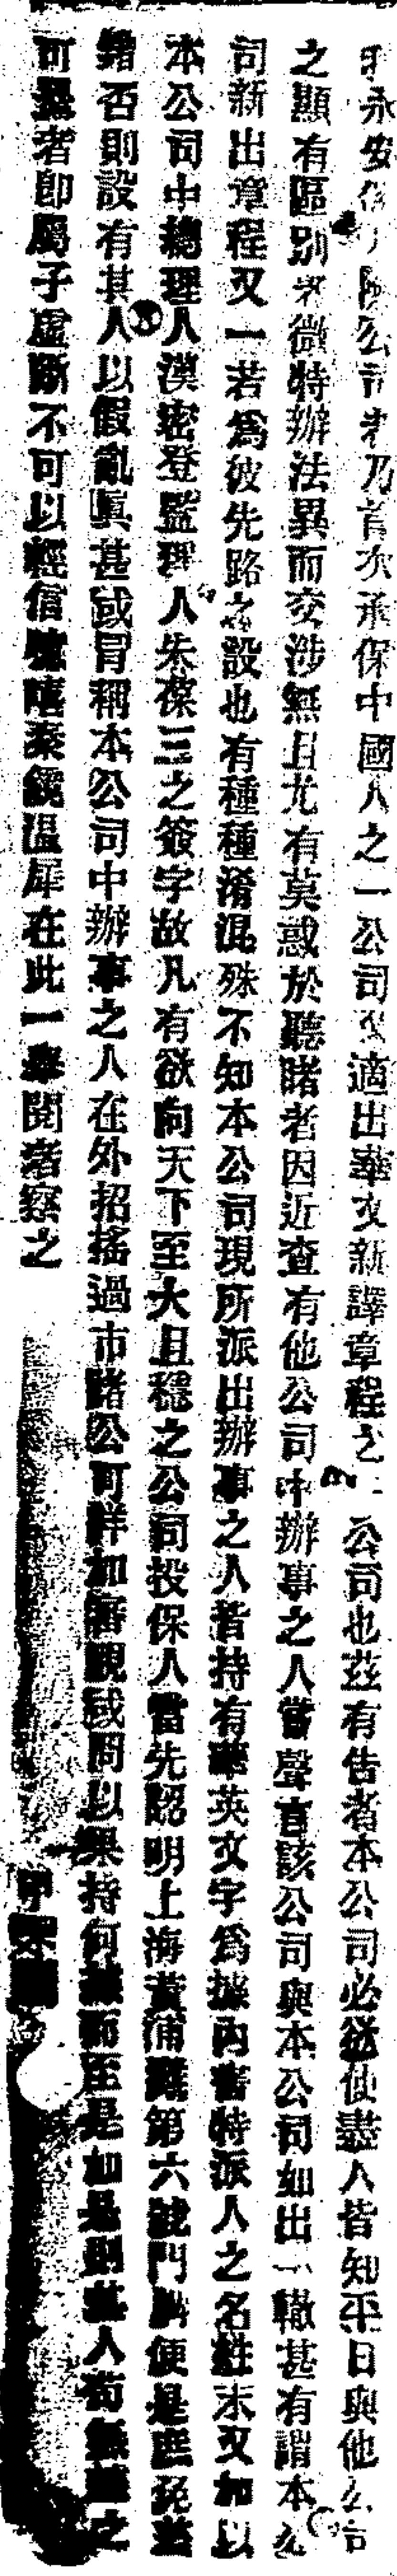 永安保險公司者乃首次承保中國人之一公司又適出華文新譯章程之一公司也茲有告者本公司必欲使盡人皆知平日與他公司
之顯有區別者微特辦法異而交涉無且尤有莫惑於聽睹者因近查有他公司中辦事之人嘗聲言該公司與本公司如出一轍甚有謂本公
司新出章程又一若爲彼先路之設也有種種淆混殊不知本公司現所派出辦事之人皆持有華英文字爲據內書特派人之名姓末又加以
本公司中總理人漠密登監理人朱葆三之簽字故凡有欲向天下至大且穩之公司投保人壽先認明上海黃浦灘第六號門牌便是庶免
諸否則設有其人以假亂眞甚或冒稱本公司中辦事之人在外招搖過市諸公可詳加審視或問以果持何據而至是如是則其人苟無據之
可呈者即屬子虛斷不可以輕信噫嘻秦鏡溫犀在此一舉閱者察之